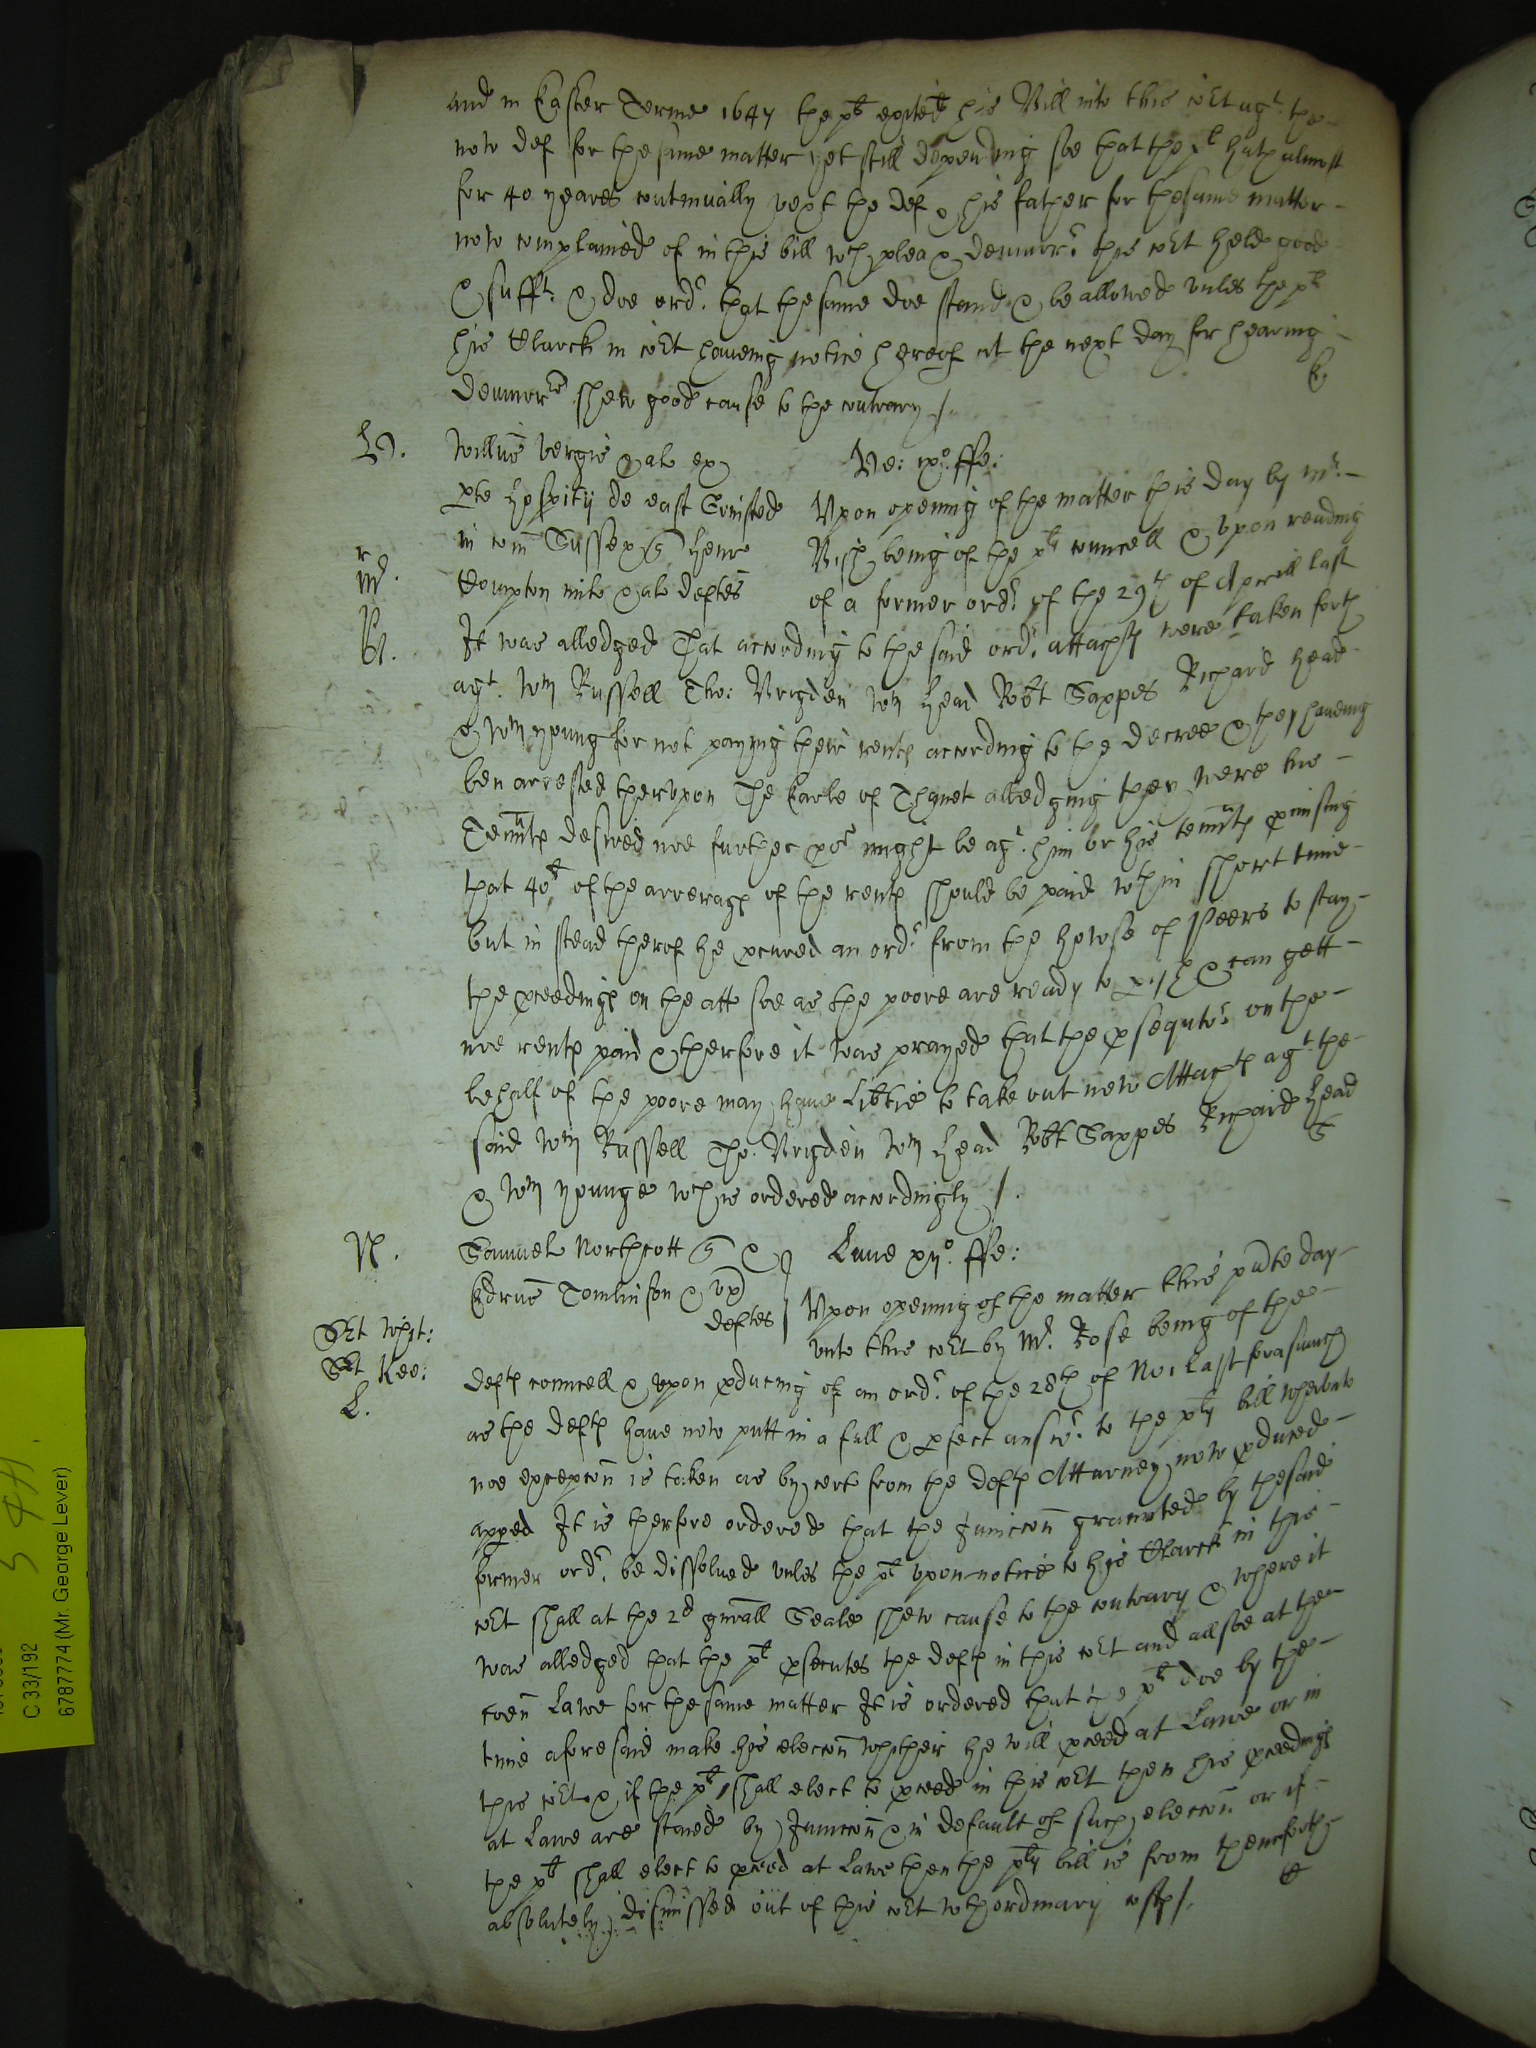 and in Easter Terme 1647 the pl exited his Bill into this cort agt. the
now def for the same matter yet still depending soe that the pl hath almost
for 40 yeares continually vext the def & his father for the same matter
now complained of in this bill wch plea & demurr. this cort held good
& sufft. & doe ordr. that the same doe stand & be allowed vnles the plt
his Clarck in cort haueing notice hereof at the next day for heareing
demurrs shew good cause to the contrary /.
L.
Willus vergis & al ex
Ve: xo. ffe:
pte hospitij de east Grinsted
Vpon opening of the matter this day by Mr.
in com Sussex q Henr
Rich being of the pls councell & vpon reading
Md.
Compton milit & al deftes
of a former ordr. of the 29th of Aprill last
It was alledged That according to the said ordr. attachts were taken forth
agt. Wm Russell Tho: Vrigden Wm Head Robt Sappes Richard Head
& Wm Young for not paying their rents according to the decree & they haueing
ben arrested thervpon The Earle of Thanet alledging they were his
Tennts desired noe further pos might be agt. him or his tennts promising
that 40l of the arrerags of the rents should be paid wthin short time
but in stead therof he pcured an ordr. from the howse of Peers to stay
the pceedings on the att soe as the poore are ready to perish & can gett
noe rents paid & therfore it was prayed that the psequtors. on the
behalf of the poore may haue Libtie to take out new Attachts agt. the
said Wm Russell Tho: Vrigden Wm Head Robt Sappes Richard Head
& Wm Younge wch is ordered accordingly /.
N.
Samuel Northcott q
Lune xijo. ffe:
Edrus Tomlinson & vx
Vpon opening of the matter this pnte day
deftes
vnto this cort by Mr. Rose being of the
defts councell & vpon pducing of an ordr. of the 28th of No: last forasmuch
L.
as the defts haue now putt in a full & pfect answr. to the pls bill wherevnto
noe excepcon is taken as by cert from the defts Attorney now pduced
apped It is therfore ordered that the Iniuccon graunted by the said
former ordr. be dissolued vnles the pl vpon notice to his Clarck in this
cort shall at the 2d gnrall Seale shew cause to the contrary & where it
was alledged that the pl psecutes the defts in this cort and allsoe at the
coen Lawe for the same matter It is ordered that the pl doe by the
time aforesaid make his eleccon whither he will pceed at Lawe or in
this cort & if the pl shall elect to pceed in this cort then his pceedings
at Lawe are staied by Iniuccon & in default of such eleccon or if
the pl shall elect to pceed at Lawe then the pls bill is from thenceforth
absolutely dismissed out of this cort wth ordinary costs /.
C 33/192
6787774 (Mr. George Lever)